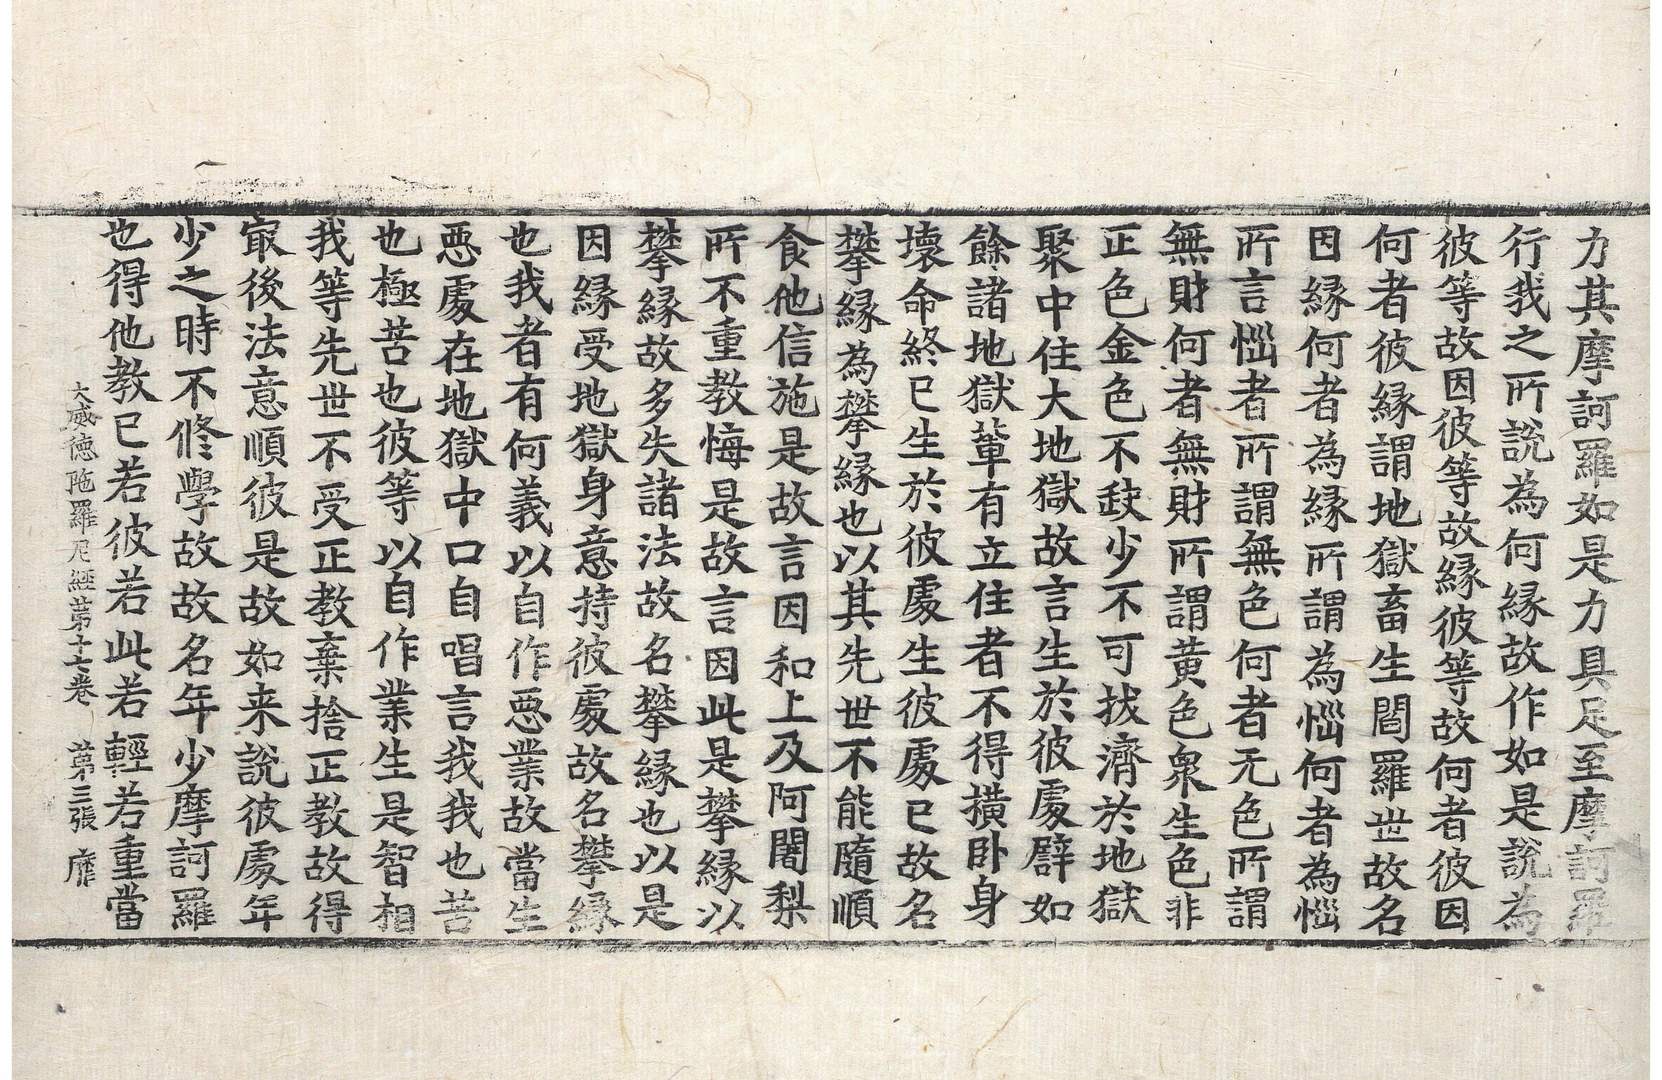 力其摩訶羅如是力具足至摩訶羅
行我之所說為何縁故作如是說為
彼等故因彼等故縁彼等故何者彼因
何者彼縁謂地獄畜生閻羅世故名
因縁何者為縁所謂為惱何者為惱
所言惱者所謂無色何者无色所謂
無財何者無財所謂黃色衆生色非
正色金色不䟽少不可拔濟於地獄
聚中住大地獄故言生於彼處譬如
餘諸地獄軰有立住者不得撗卧身
壊命終已生於彼處生彼處已故名
攀縁為攀縁也以其先世不能隨順
食他信施是故言因和上及阿闍梨
所不重教悔是故言因此是攀縁以
攀縁故多失諸法故名攀縁也以是
因縁受地獄身意持彼處故名攀縁
也我者有何義以自作惡業故當生
惡處在地獄中口自唱言我我也苦
也極苦也彼等以自作業生是智相
我等先世不受正教棄捨正教故得
㝡後法意順彼是故如来說彼處年
少之時不修學故故名年少摩訶羅
也得他教已若彼若此若輕若重當
大威德陁羅尼經第十七卷 第三張 靡